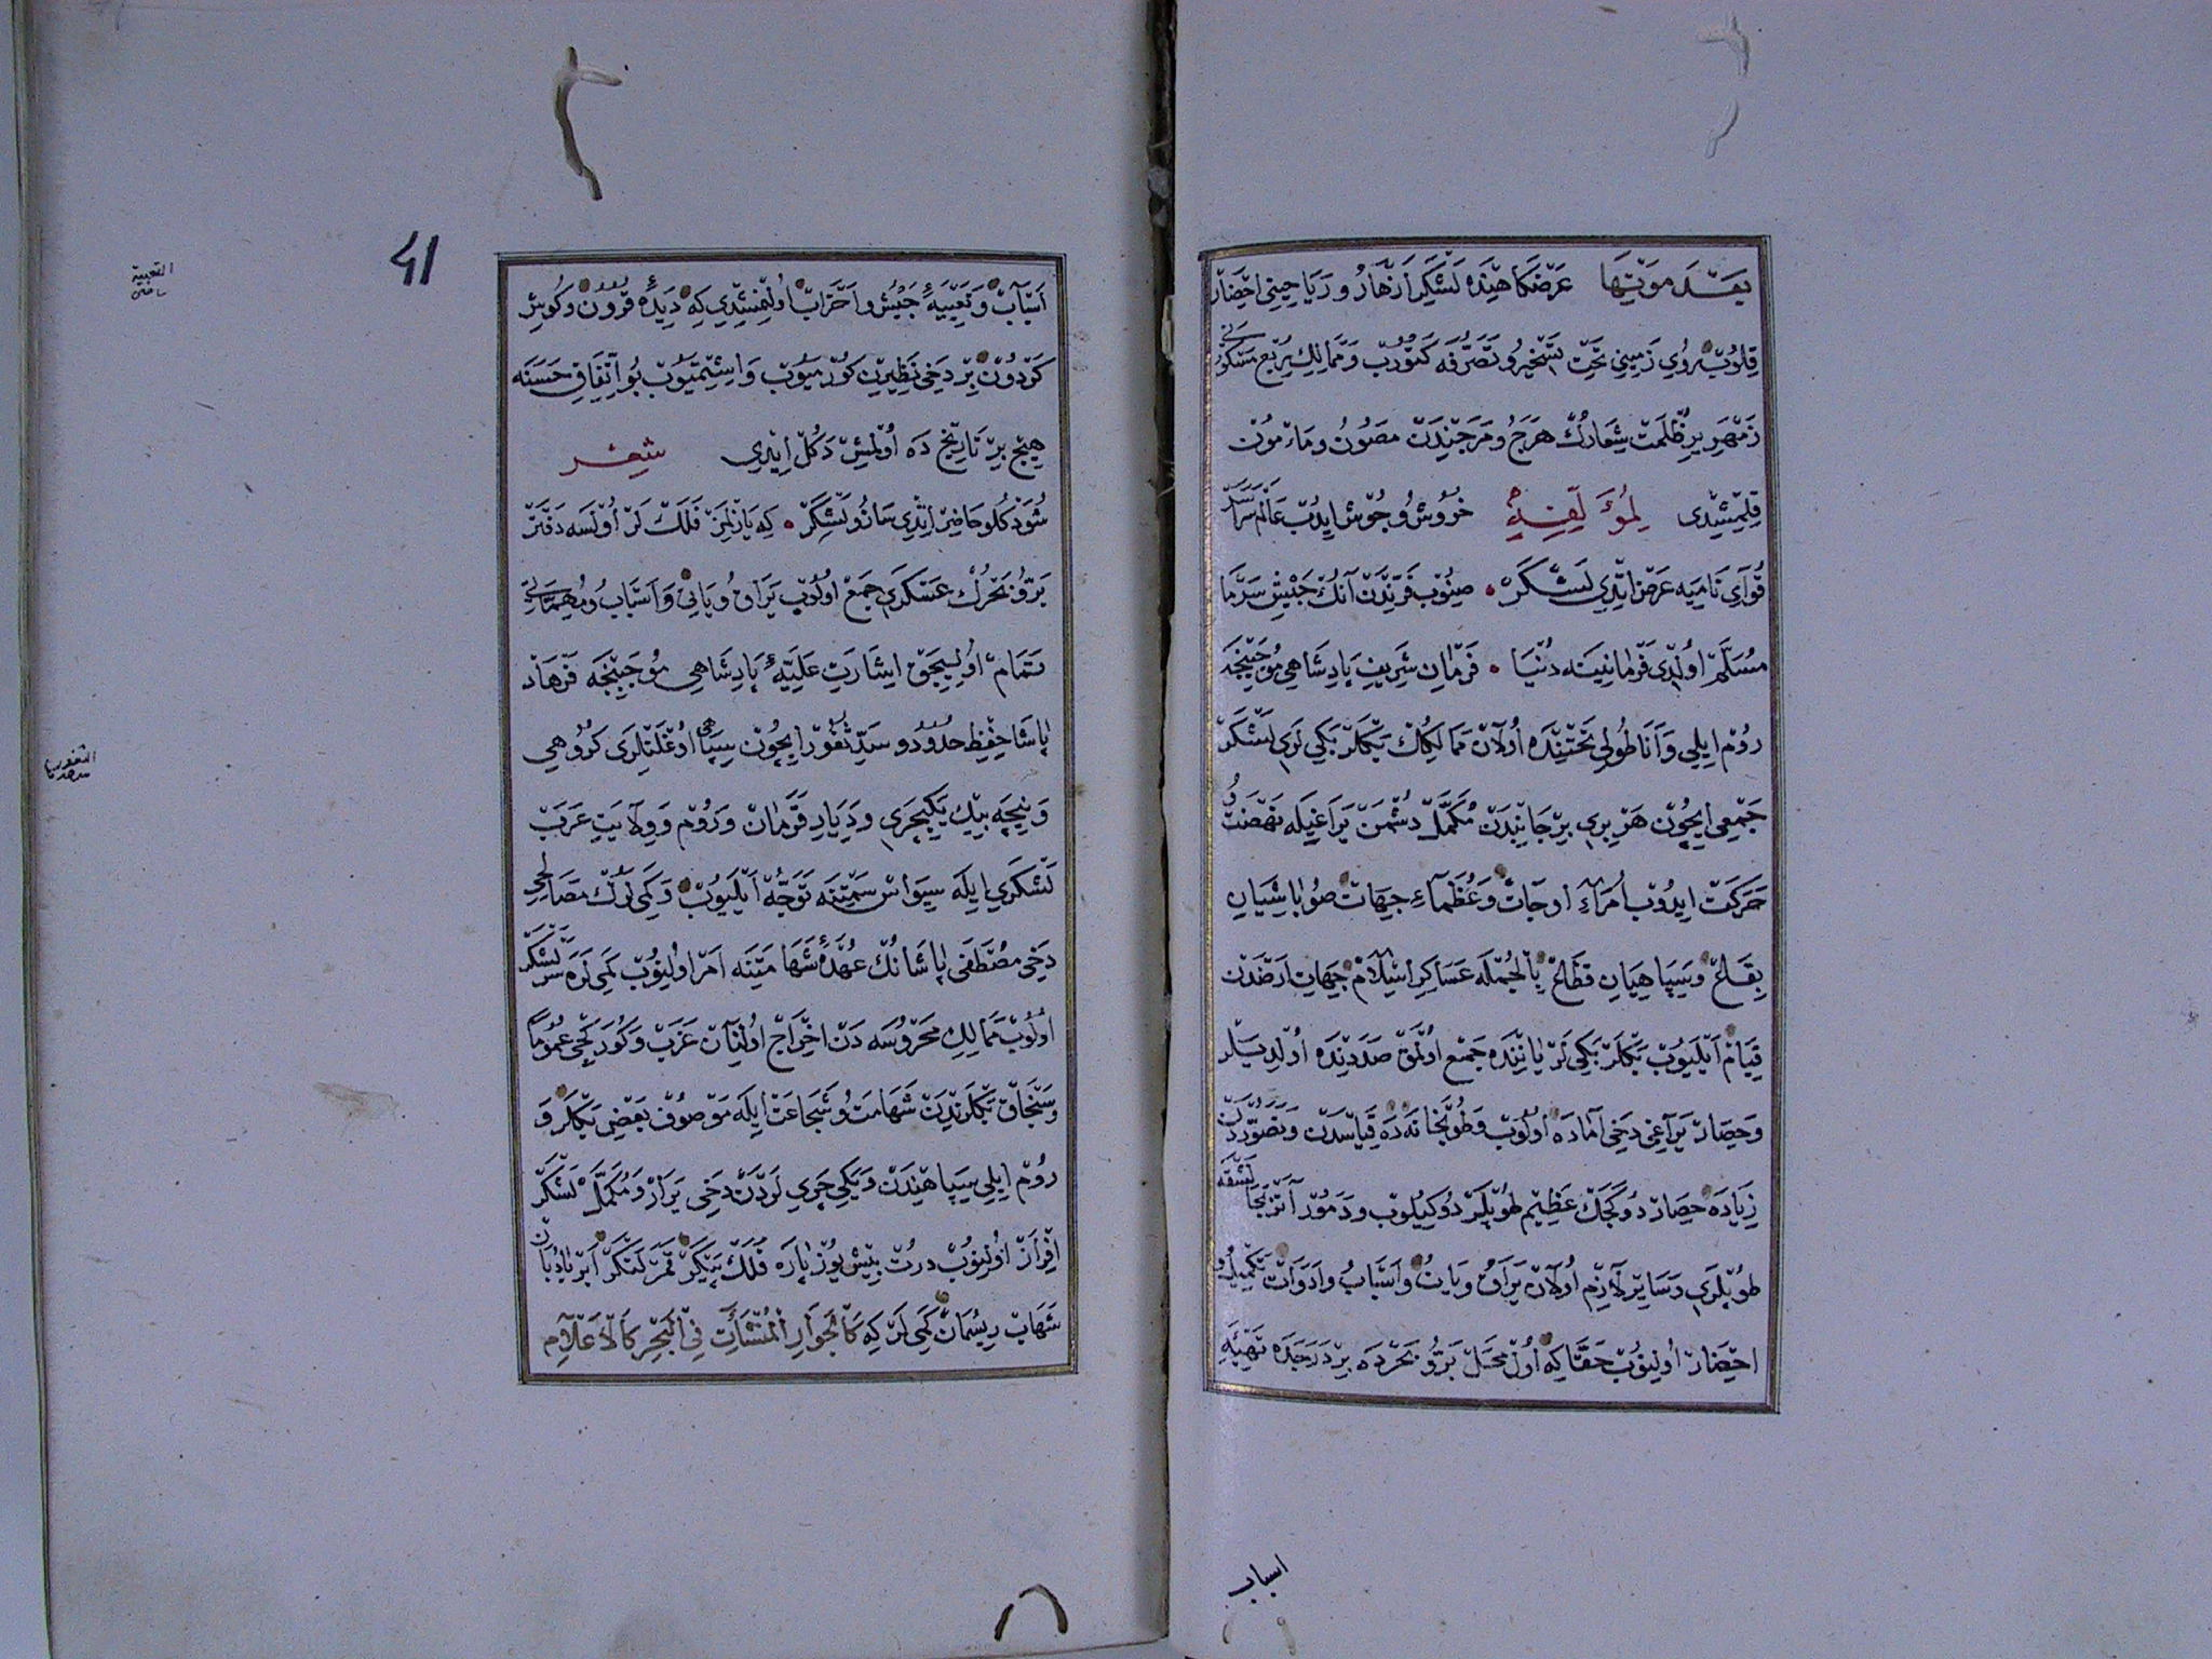 بَعْدَ مَوْتِهَا عَرْضكَاهِنْدَه لَشْكَرِ اَزْهَارُ و رَيَاحِينِى احْضَارْ
قِلُوبْ رُويِ زَمِينِى تَحْتِ تَسْخِيرُ و تَصَرُّفَه كَتُورُبْ وَ مَمَالِكِ رُبْعِ مَسْكُونِى
زَمْهَرِيرِ ظُلْمَتْ شِعَارُكْ هَرَجُ و مَرَجِنْدَنْ مَصُونُ و مَأمُونْ
قِلْمِشِيْدى لِمُؤَلِّفِهِ خُرُوشُ و جُوشْ ايدُبْ عَالَمْ سَرَاسَرْ
قُوَايِ نَامِيَه عَرْضْ ايْتْدِى لَشْكَرْ صِنُوبْ فَرِّنْدَنْ آنُكْ جَيْشِ سَرْمَا
مُسَلَّمْ اُولْدِى فَرْمَانِينَه دُنْيَا فَرْمَانِ شَرِيفِ پَادِشَاهِى مُوجَبِنْجَه
رُومْ ايلِى وَ آنَاطُولِى تَحْتِنْدَه اُولَانْ مَمَالِكُكْ بَكْلَرْبَكِى لَرِى لَشْكَرْ
جَمْعِى ايچُونْ هَرْ بِرى بِرْ جَانِبْدَنْ مُكَمَّلْ دُشْمَنْ يَرَاغِيلَه نَهْضَتُ و
حَرَكَتْ ايدُوبْ اُمَرَآءِ اوجَاتْ وَ عُظَمَآءِ جِهَاتْ صُوبَاشِيَانِ
بِقَاعْ و سِپَاهِيَانِ قِطَاعْ بِالْجُمْلَه عَسَاكِرِ اسْلَامْ جِهَاتِ اَرْضَدَنْ
قِيَامْ اَيْلَيُوبْ بَكْلَرْبَكِى لَرْ يَانِنْدَه جَمْعْ اُولْمَقْ صَدَدِنْدَه اُولْدِيلَرْ
وَ حِصَارْ يَرَاغِى دَخِى آمَادَه اُولُوبْ وَ طُوپْخَانَه دَه قِيَاسْدَنْ وَ تَصَوُّرْدَنْ
زِيَادَه حِصَارْ دُوكَجَكْ عَظِيمْ طُوپْلَرْ دُوكِيلُوبْ وَ دَمُورْ آتَرْ بَجَالُشْقَه
طُوپْلَرِى وَ سَايِرْ لَازِمْ اُولَانْ يَرَاقْ وَ يَاتُ و اَسْبَابُ و اَدَوَاتْ تَكْمِيلُ و
احْضَارْ اُولِنُوبْ حَقَّاكِه اُولْ مَحَلْ بَرُّ و بَحْرْدَه بِرْ دَرَجَدَه تَهْيِئَهِ
اسباب
41
اَسْبَابْ وَ تَعْبِيَهِ جَيْشُ و اَحْزَابْ اُولِنْمِشْدِى كِه دِيدَهِ قُرُونْ و كُوشِ
كَرْدُونْ بِرْ دَخِى نَظِيرِنْ كُورْمِيُوبْ وَ اشِتْمِيُوبْ بُو اتِّفَاقِ حَسَنَه
هِيچْ بِرْ تَارِيخْ دَه اُولْمِشْ دَكُلْ ايدِى شِعْر
شُو دَكْلُو حَاضِرْ ايْتْدِى سَازُ و لَشْكَرْ كِه يَازِلْمَزْ فَلَكْ لَرْ اُولْسَه دَفْتَرْ
بَرُّ و بَحْرُكْ عَسْكَرِى جَمْعْ اُولُوبْ يَرَاقُ و يَاتِى وَ اَسْبَابُ و مُهِمَّاتِى
تَمَامْ اُولِيجَقْ اِشَارَتِ عَلِيَّهِ پَادِشَاهِى مُوجَبِنْجَه فَرْهَادْ
پَاشَا حِفْظِ حُدُودُ و سَدِّ ثُغُورْ ايچُونْ سِپَاهِى اُوغْلَنْلَرِى كُرُوهِى
وَ نِيچَه بِيكْ يَكِيچَرِى وَ دِيَارِ قَرَمَانْ وَ رُومْ وَ وِلَايَتِ عَرَبْ
لَشْكَرِى اِيلَه سِيوَاسْ سَمْتِنَه تَوَجُّهْ اَيْلَيُوبْ وَ كَمِى لَرُكْ مَصَالِحِى
دَخِى مُصْطَفَى پَاشَانُكْ عُهْدَهِ شَهَامَتِنَه اَمْرْ اُولِنُوبْ كَمِى لَرَه سَرْلَشْكَرْ
اُولُوبْ مَمَالِكِ مَحْرُوسَه دَنْ اخْرَاجْ اُولِنَانْ عَزَبْ وَ كُورَكْجِى عُمُومًا
و سَنْجَاقْ بَكْلَرِنْدَنْ شَهَامَتُ و شَجَاعَتْ اِيلَه مَوْصُوفْ بَعْضِى بَكْلَرْ وَ
رُومْ ايلِى سِپَاهِنْدَنْ وَ يَكِى چَرِى لَرْدَنْ دَخِى يَرَارْ وَ مُكَمَّلْ لَشْكَرْ
افْرَازْ اُولِنُوبْ دُرْتْ بِشْ يُوزْ پَارَه فَلَكْ پَيْكَرْ قَمَرْ لَنْكَرْ اَبْرْ بَادْبَانْ
شَهَابْ رِيسْمَانْ كَمِى لَرْ كِه كَالْجَوَارِ الْمُنْشَآتِ فِى الْبَحْرِ كَالْاَعْلَامِ
التعبية
الثغور